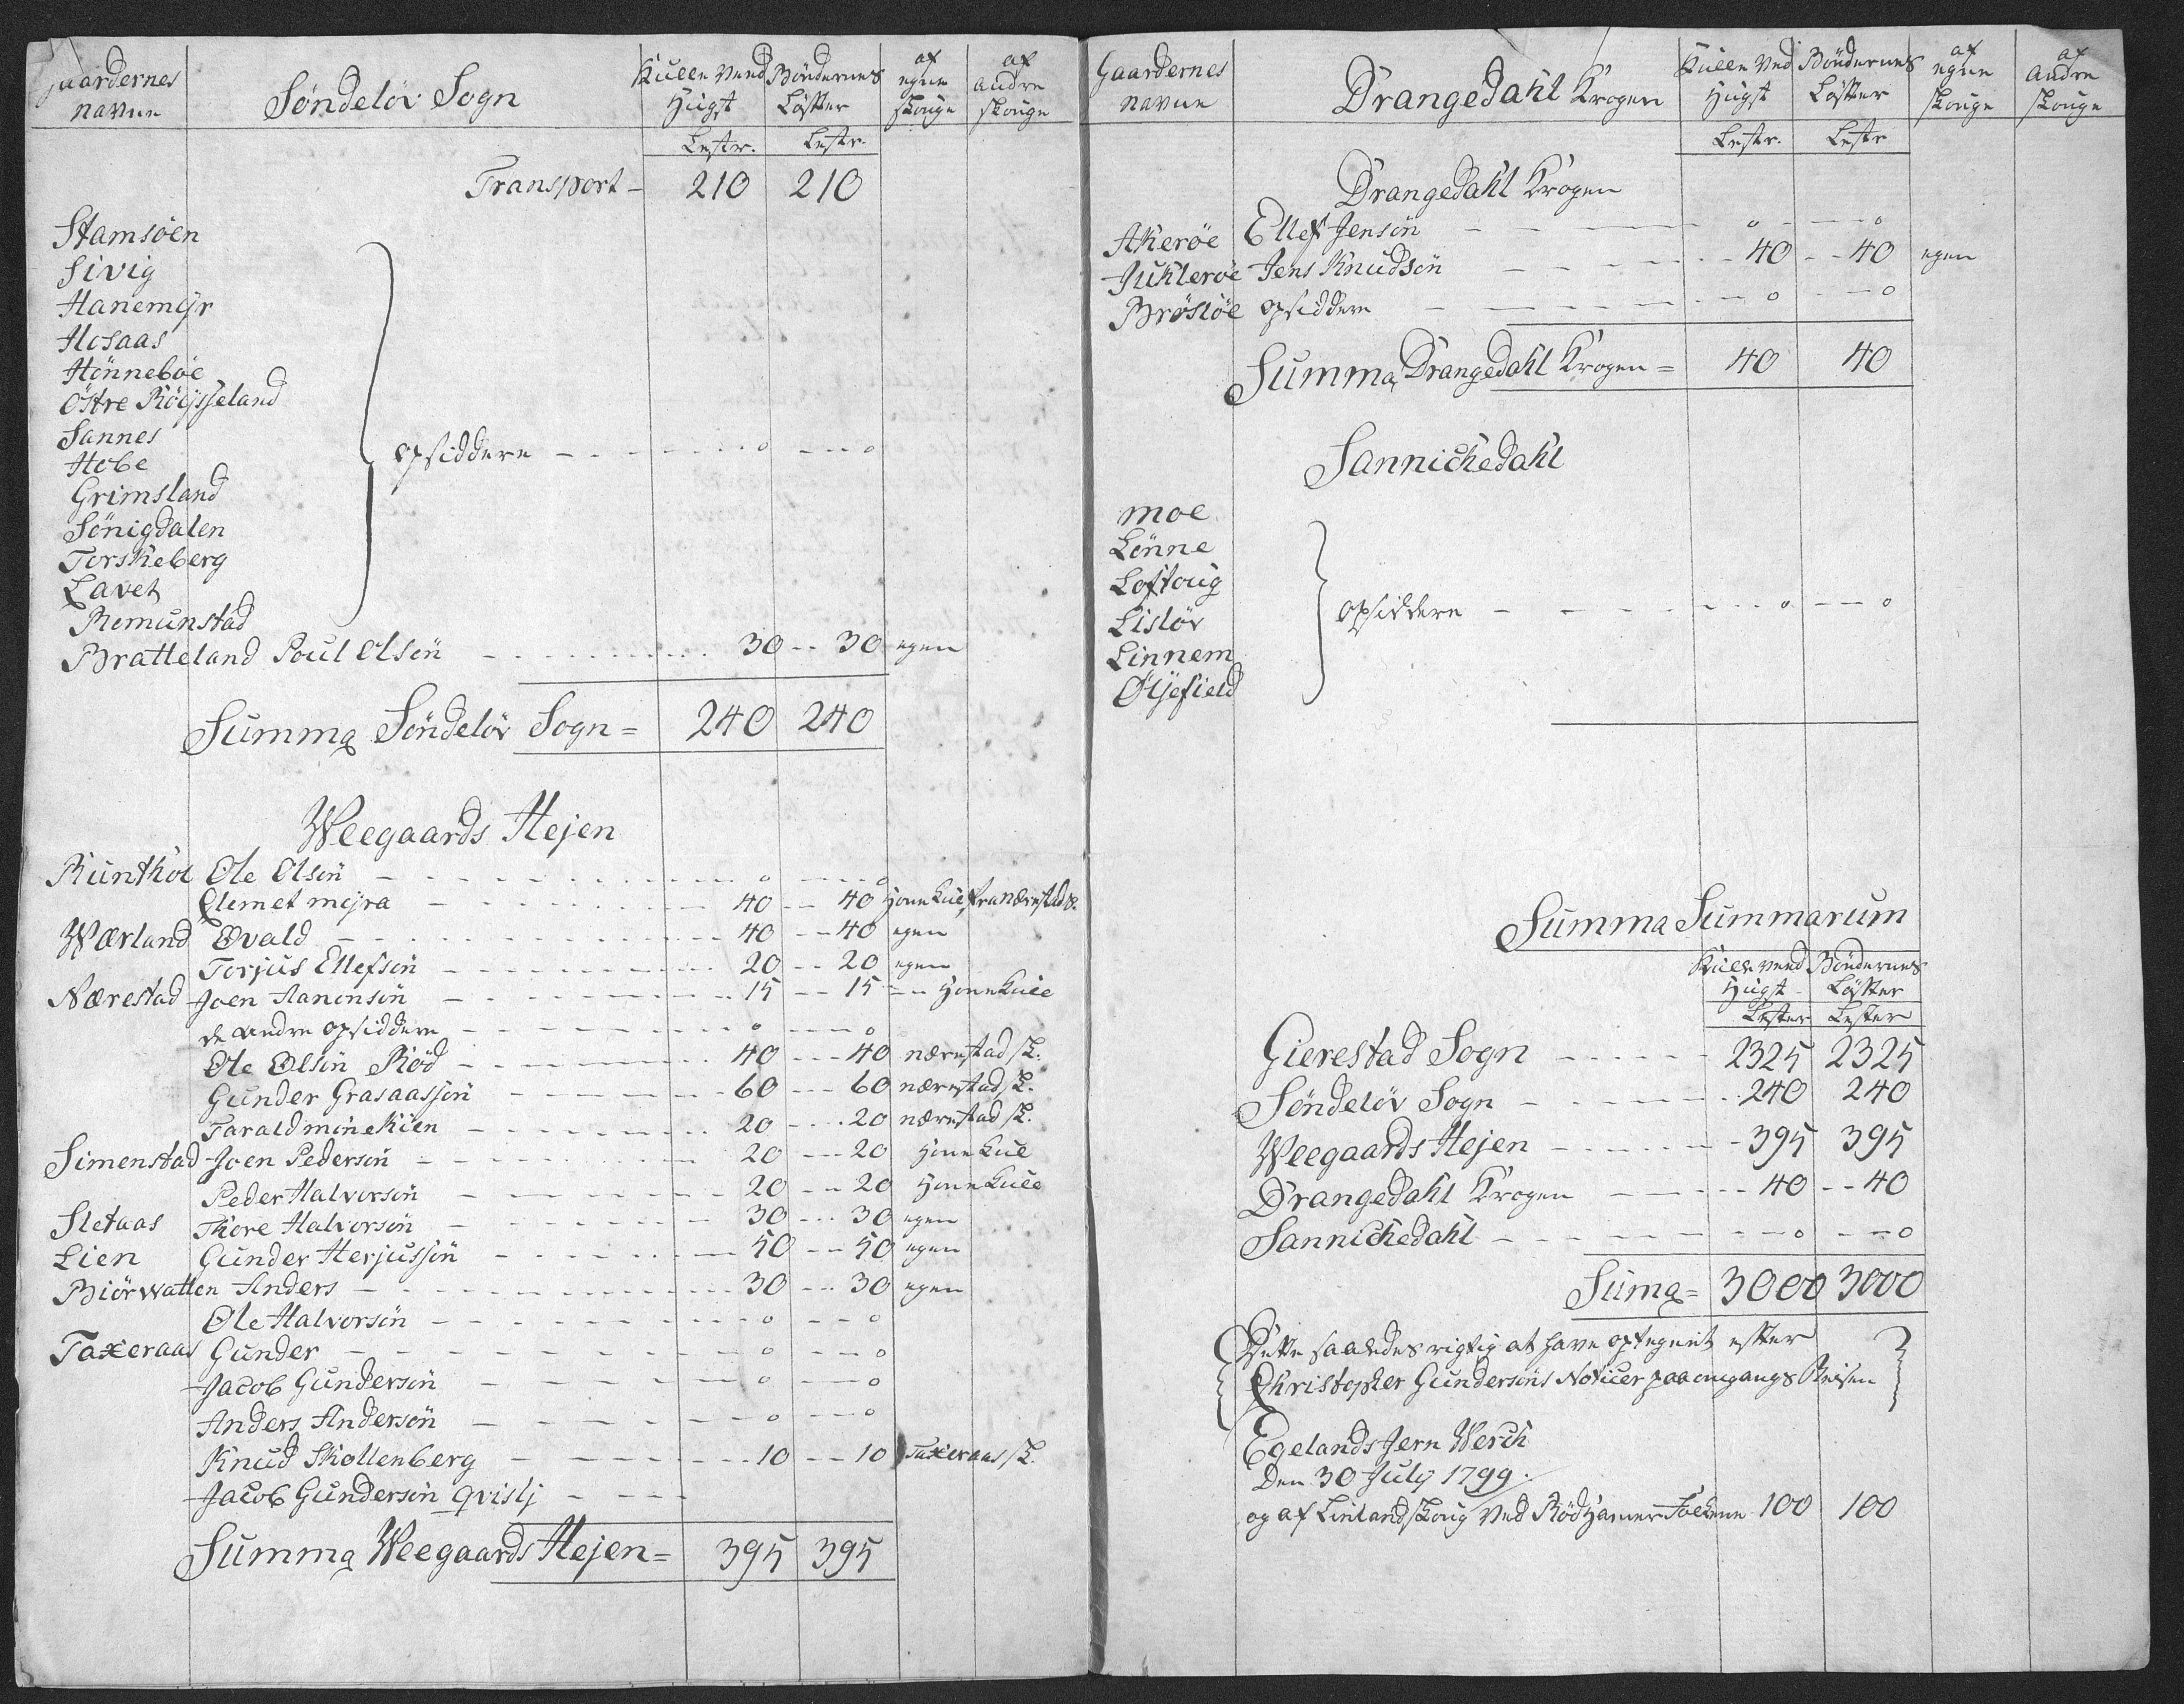 Gaardernes navne
Søndeløv Sogn
Kulle Veed Hugst
Bøndernes Løfter
af egne skouge
af andre skouge
Lestr. Lestr.
Transport - 210 210
Stamsøen
Sivig
Hanemÿr
Hosaas
Hønnebøe
Östre Röÿsseland
Sannes
Hobe
Grimsland
Sönigdalen
Torskeberg
Lavet
Remunstad
opsiddere - - - o - - - o
Bratteland Poul Olsön - - - 30 - - 30 egen
Summa Söndelöv Sogn = 240 240
Weegaards Hejen
Runthol Ole Olsön - - - o - - - o
Clemet mejra - - - 40 - - 40
Wærland Øvald - - - 40 - - 40 egen
Torjus Ellefsön - - - 20 - - 20 egen
Nærestad Joen Aanonsön - - - 15 - - 15
de andre opsiddere - - - o - - - o
Ole Olsön Röd - - - 40 - - - 40 nærestad sk.
Gunder Grasaassön - - - 60 - - - 60 nærestad sk.
Tarald minekien - - - 20 - - - 20 nærestad sk.
Simenstad Joen Pedersön - - - 20 - - - 20
Peder Halvorsön - - - 20 - - 20
Sletaas Thore Halvorsön - - - 30 - - - 30 egen
Lien Gunder Herjussön - - - 50 - - 50 egen
Biörwatten Anders - - - 30 - - - 30 egen
Ole Halvorsön - - - o - - - o
Taxeraas Gunder - - - o - - - o
Jacob Gundersön - - - o - - - o
Anders Andersön - - - o - - - o
Knud Skollenberg - - - 10 - - 10 Taxeraas sk.
Jacob Gundersön qvislj - - -
Summa Weegaards Hejen = 395 395
Gaardernes navne
Drangedahl Krogen
Kulle Ved Hugst
Bøndernes Løfter
af egne skouge
af andre skouge
Lestr. Lestr
Drangedahl Krogen
Akerøe Ellef Jensön - - - o - - - o
Juklerøe Jens Knudsön - - - 40 - - 40 egen
Brøsløe opsiddere - - - o - - - o
Summa Drangedahl Krogen = 40 40
Sannickedahl
moe
Lönne
Loftoug
Lisløv
Linnem
Øljefield
opsiddere - - - o - - - o
Summa Summarum
Kulle veed Hugst
Bøndernes Løfter
Lester Lester
Gierestad Sogn - - - 2325 2325
Søndeløv Sogn - - - 240 240
Weegaards Hejen - - - 395 395
Drangedahl Krogen - - - 40 - - 40
Sannickedahl - - - o - - - o
Suma = 3000 3000
Dette saaledes rigtig at have optegnet efter
Christopher Gundersöns Noticer paa omgangs Reisen
Egelands Jern Werck
Den 30 July 1799.
og af Linland skoug ved Rödhamer 100 100